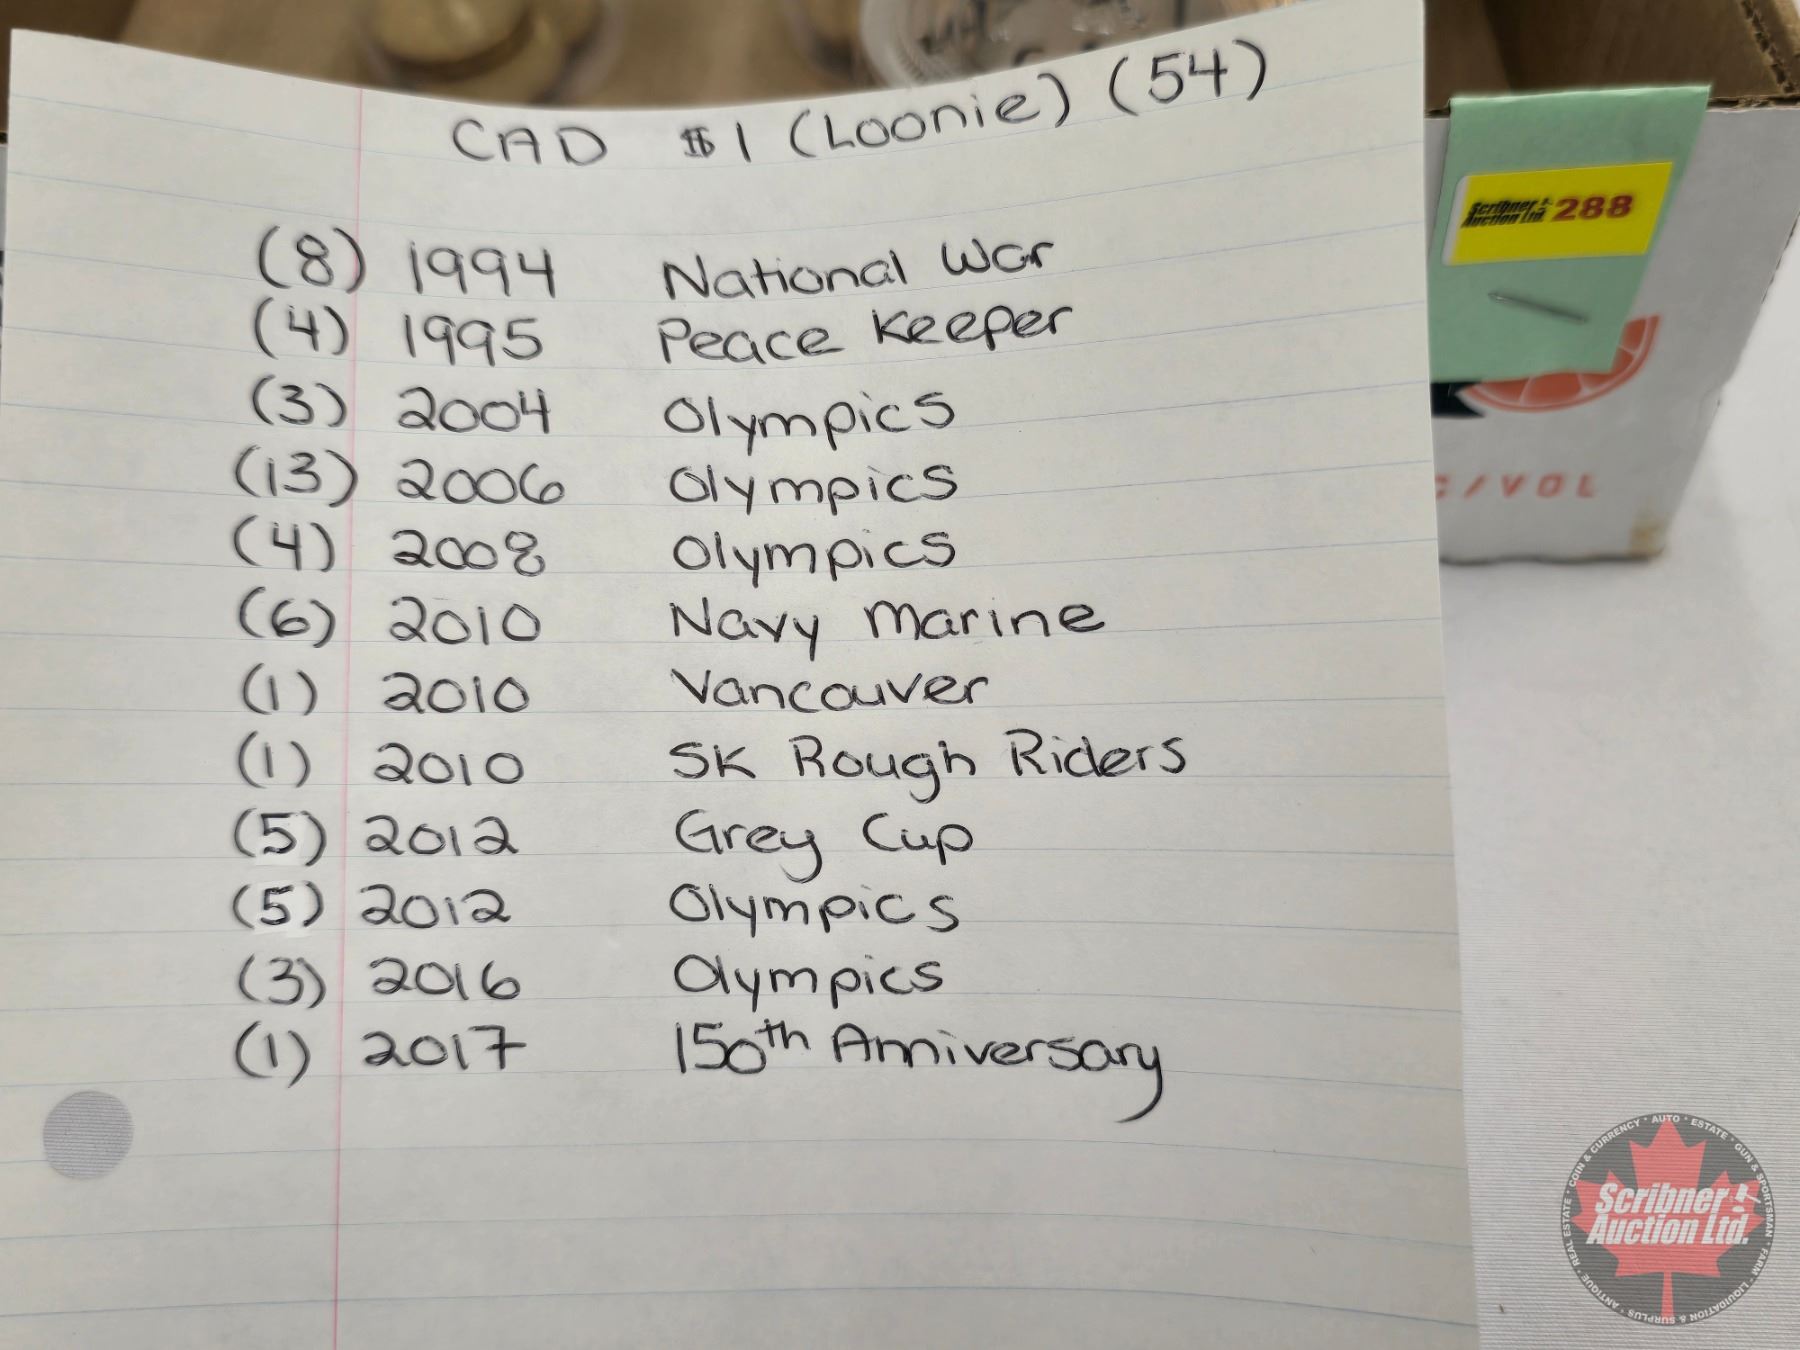 CAD $1 (Loonie) (54)
Scribner Auction Ltd. 288
(8) 1994 National War
(4) 1995 Peace Keeper
(3) 2004 Olympics
(13) 2006 Olympics
(4) 2008 Olympics
(6) 2010 Navy Marine
(1) 2010 Vancouver
(1) 2010 SK Rough Riders
(5) 2012 Grey Cup
(5) 2012 Olympics
(3) 2016 Olympics
(1) 2017 150th Anniversary
/VOL
COIN & CURRENCY • AUTO • ESTATE • GUN & SPORTSMAN • FARM • LIQUIDATION & SURPLUS • ANTIQUE • REAL ESTATE
Scribner
Auction Ltd.